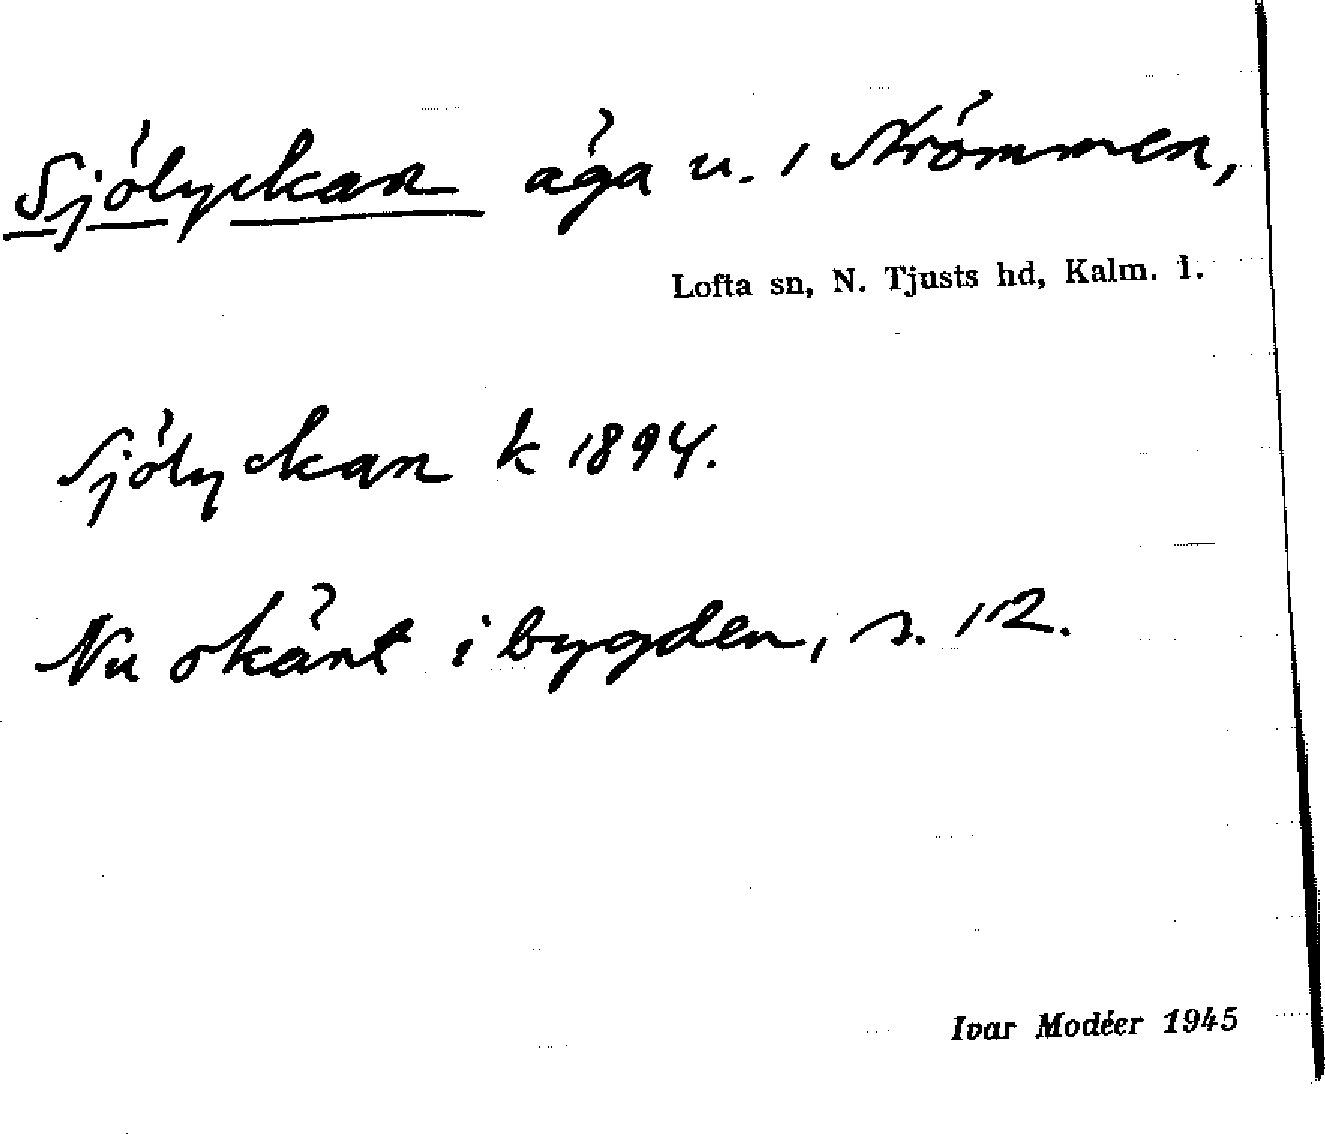 Sjölyckan äga u. 1 Strömmen,
Lofta sn, N. Tjusts hd, Kalm. l.
Sjölyckan k 1894.
Nu okänt i bygden, s. 12.
Ivar Modéer 1945